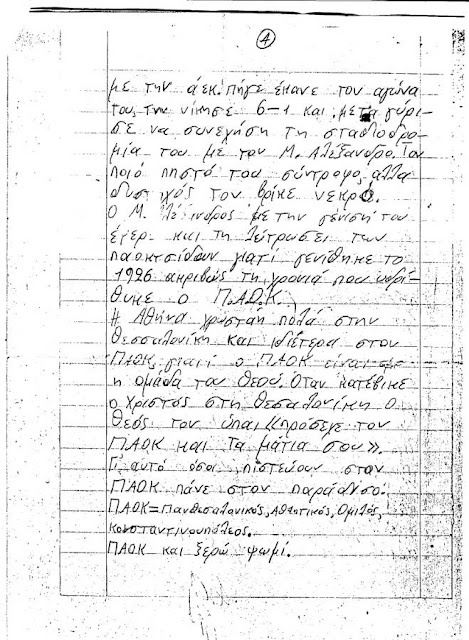 4
με την άεκ. πήγε έκανε τον αγώνα
του, την νίκησε 6-1 και μετά γύρι-
σε να συνεχήση τη σταδιοδρο-
μία του με τον Μ. Αλέξανδρο. Τον
ποιό πηστό του σύντροφο, αλλα
δυστιχός τον βρίκε νεκρό.
Ο Μ. Αλέξανδρος με την γένισή του
έφερε και τη λύτρωσει των
παοκτσίδων γιατί γενίθηκε το
1926 ακριβώς τη χρονιά που ιδρί-
θυκε ο Π.Α.Ο.Κ.
Η Αθήνα χρωστάη πολά στην
Θεσσαλονίκη και ιδιέτερα στον
ΠΑΟΚ, γιατί ο ΠΑΟΚ είναι
η ομάδα του Θεού. Όταν κατέβικε
ο Χριστός στη Θεσαλονίκη ο
Θεός του ύπαι «πρόσεχε τον
ΠΑΟΚ και τα μάτια σου».
Γι αυτό όσοι πιστεύουν σταν
ΠΑΟΚ πάνε στον παράδησο.
ΠΑΟΚ=Πανθεσαλονικός, Αθλητικός, Ομιλός,
Κονσταντινουπόλεος.
ΠΑΟΚ και ξερώ ψωμί.